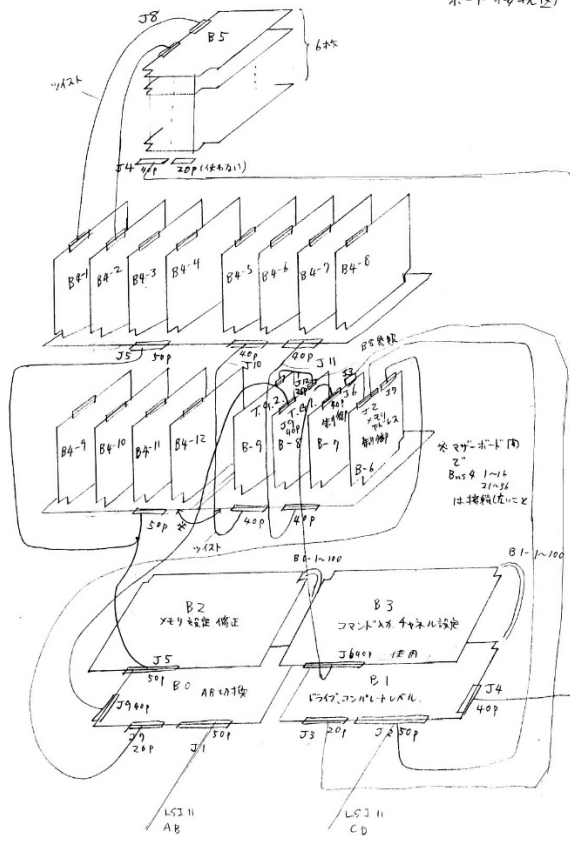 ボード接続図
J8
B5
6枚
ツイスト
J4 40p 20p(使わない)
B4-1
B4-2
B4-3
B4-4
B4-5
B4-6
B4-7
B4-8
J5 50p
40p
J10
40p
J11
B8基板
B4-9
B4-10
B4-11
B4-12
B-9
T.G.2
B-8
T.G.1
J9
40p
J12
26p
B-7
制御
J3
J6
40p
B-6
J2
メモリ
アドレス
制御
J7
※ マザーボード間
で
Bus4 1~16
21~36
は接続しないこと
50p
※
40p
40p
ツイスト
B0-1~100
B1-1~100
B2
メモリ設定 修正
B3
コマンド入力、チャネル設定
J5
50p
J6 40p 使用
B0
AB切換
B1
ドライブ、コンパレートレベル
J9 40p
J7
26p
J1
50p
J3
20p
50p
J4
40p
LSI 11
AB
LSI 11
CD